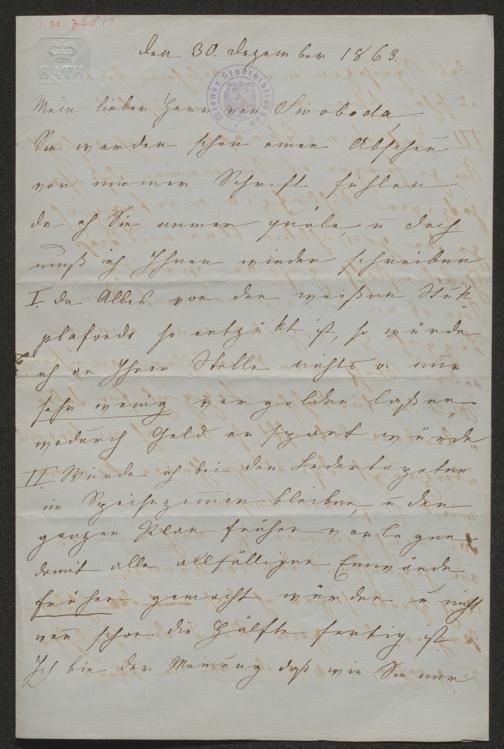 I.N. 72840
BATH
Wiener Stadtbibliothek
den 30. Dezember 1863.
Mein lieber Herr von Swoboda,
Sie werden schon einen Abscheu
vor meiner Schrift fühlen
da ich Sie immer quäle u doch
muß ich Ihnen wieder schreiben
I. da Alles von den weißen Stuk-
plafonds so entzükt ist, so würde
ich an Ihrer Stelle nichts o. nur
sehr wenig vergolden laßen,
wodurch Geld erspart würde
II Würde ich bei den Ledertapeten
im Speisezimmer bleiben, u den
ganzen Plan früher vorlegen
damit alle allfälligen Einwände
früher gemacht würden u nicht
wen schon die Hälfte fertig ist
Ich bin der Meinung daß wir Sie nur